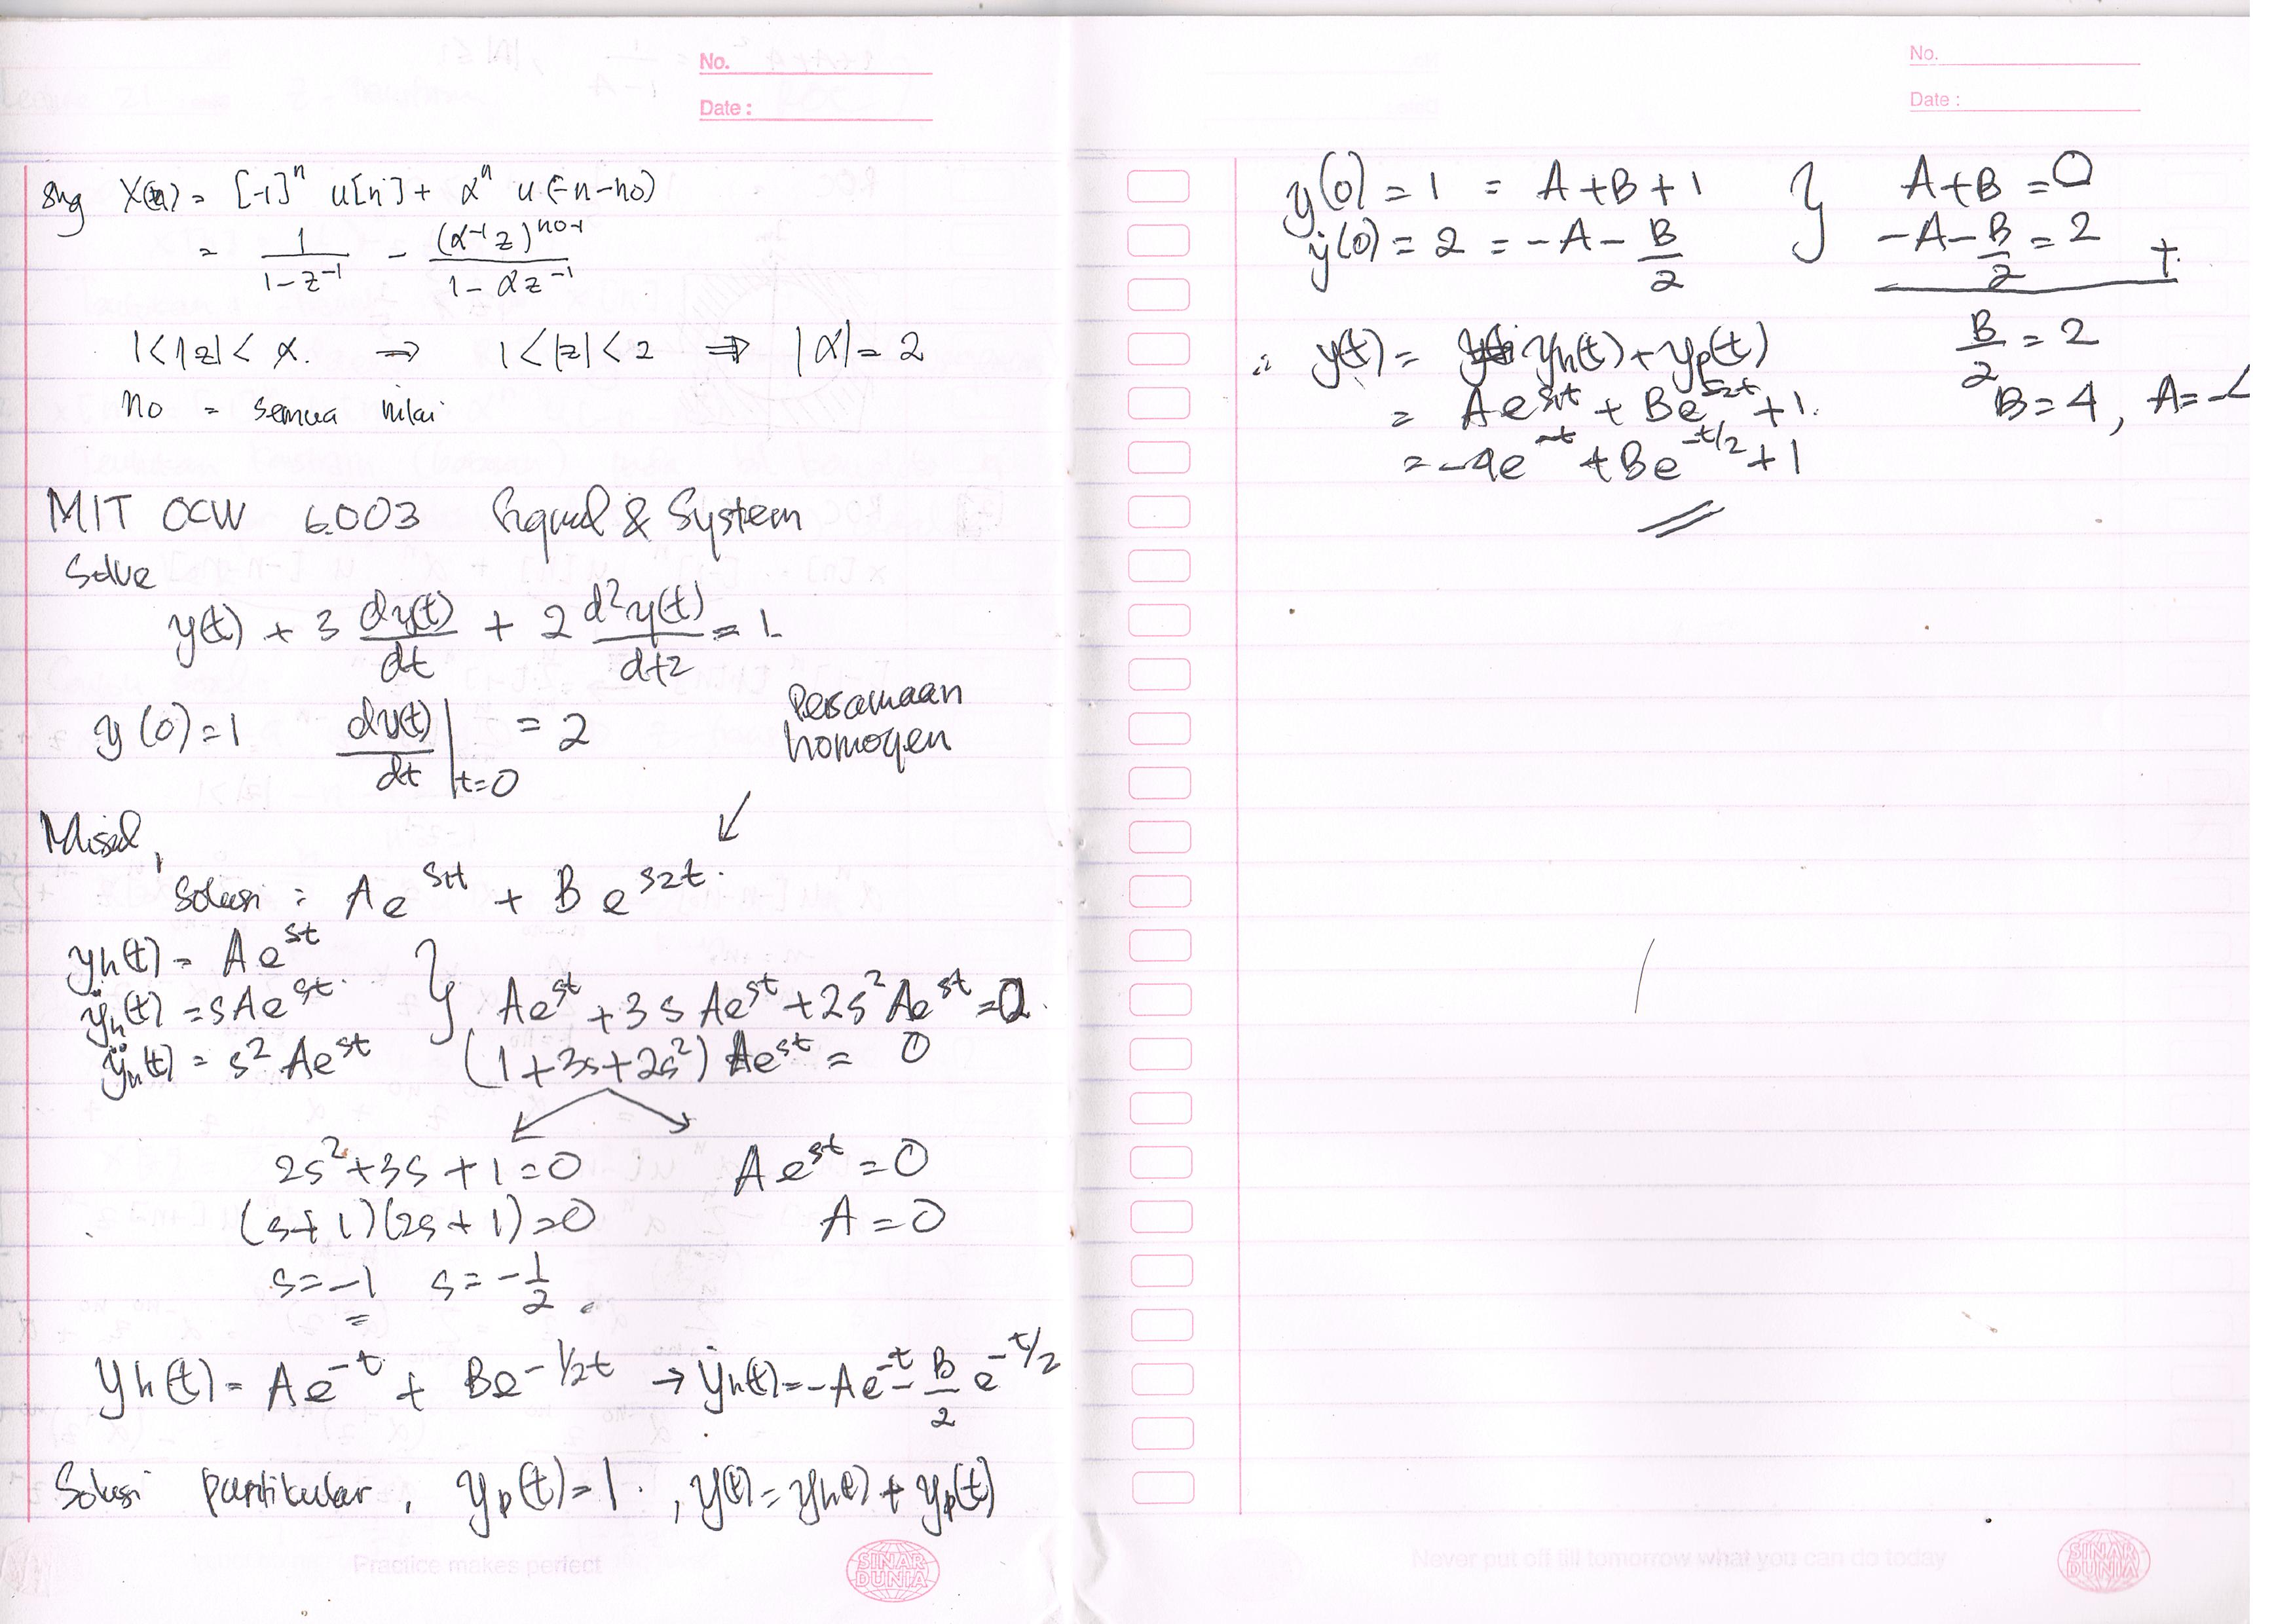 No.
Date :
shg X(z) = [-1]^n u[n] + α^n u(-n-no)
= 1/(1-z^-1) - (α^-1 z)^(no-1)/(1-αz^-1)
1<|z|<α. ⇒ 1<|z|<2 ⇒ |α|=2
no = semua nilai
MIT OCW 6.003 Signal & System
Solve
y(t) + 3 dy(t)/dt + 2 d²y(t)/dt2 = 1
y(0)=1 dy(t)/dt |t=0 = 2
Persamaan
homogen
↙
Misal,
Solusi = A e^s1t + B e^s2t.
yh(t) = A e^st
ẏh(t) = sAe^st. } Ae^st + 3s Ae^st + 2s² Ae^st = 0.
ÿh(t) = s² Ae^st (1+3s+2s²) Ae^st = 0
2s²+3s+1=0 Ae^st=0
(s+1)(2s+1)=0 A=0
s=-1 s=-1/2.
yh(t) = Ae^-t + Be^-1/2t → ẏh(t) = -Ae^-t - B/2 e^-t/2
Solusi partikular, yp(t)=1. , y(t)=yh(t)+yp(t)
Practice makes perfect
SINAR
DUNIA
No.
Date :
y(0)=1 = A+B+1 } A+B=0
ẏ(0)=2 = -A-B/2 -A-B/2=2 +
B/2=2
B=4, A=-4
∴ y(t) = yh(t)+yp(t)
= Ae^s1t + Be^s2t +1.
= -4e^-t + Be^-t/2 +1
Never put off till tomorrow what you can do today
SINAR
DUNIA